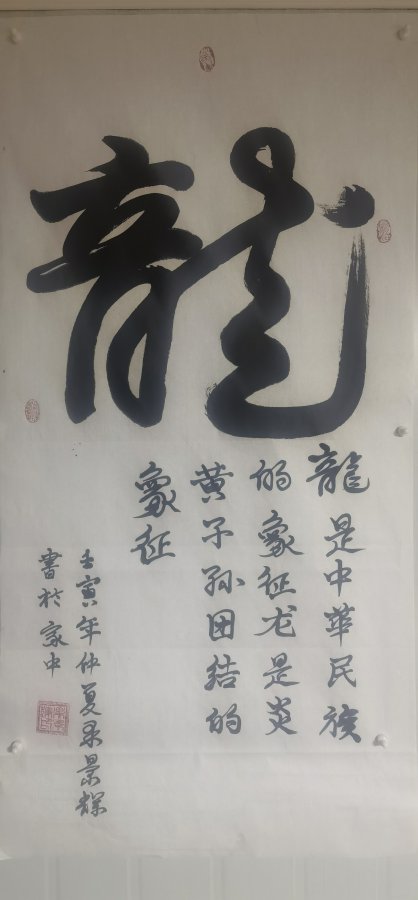 龍
龍是中華民族
的象征龙是炎
黄子孙团结的
象征
壬寅年仲夏录景輝
書於家中